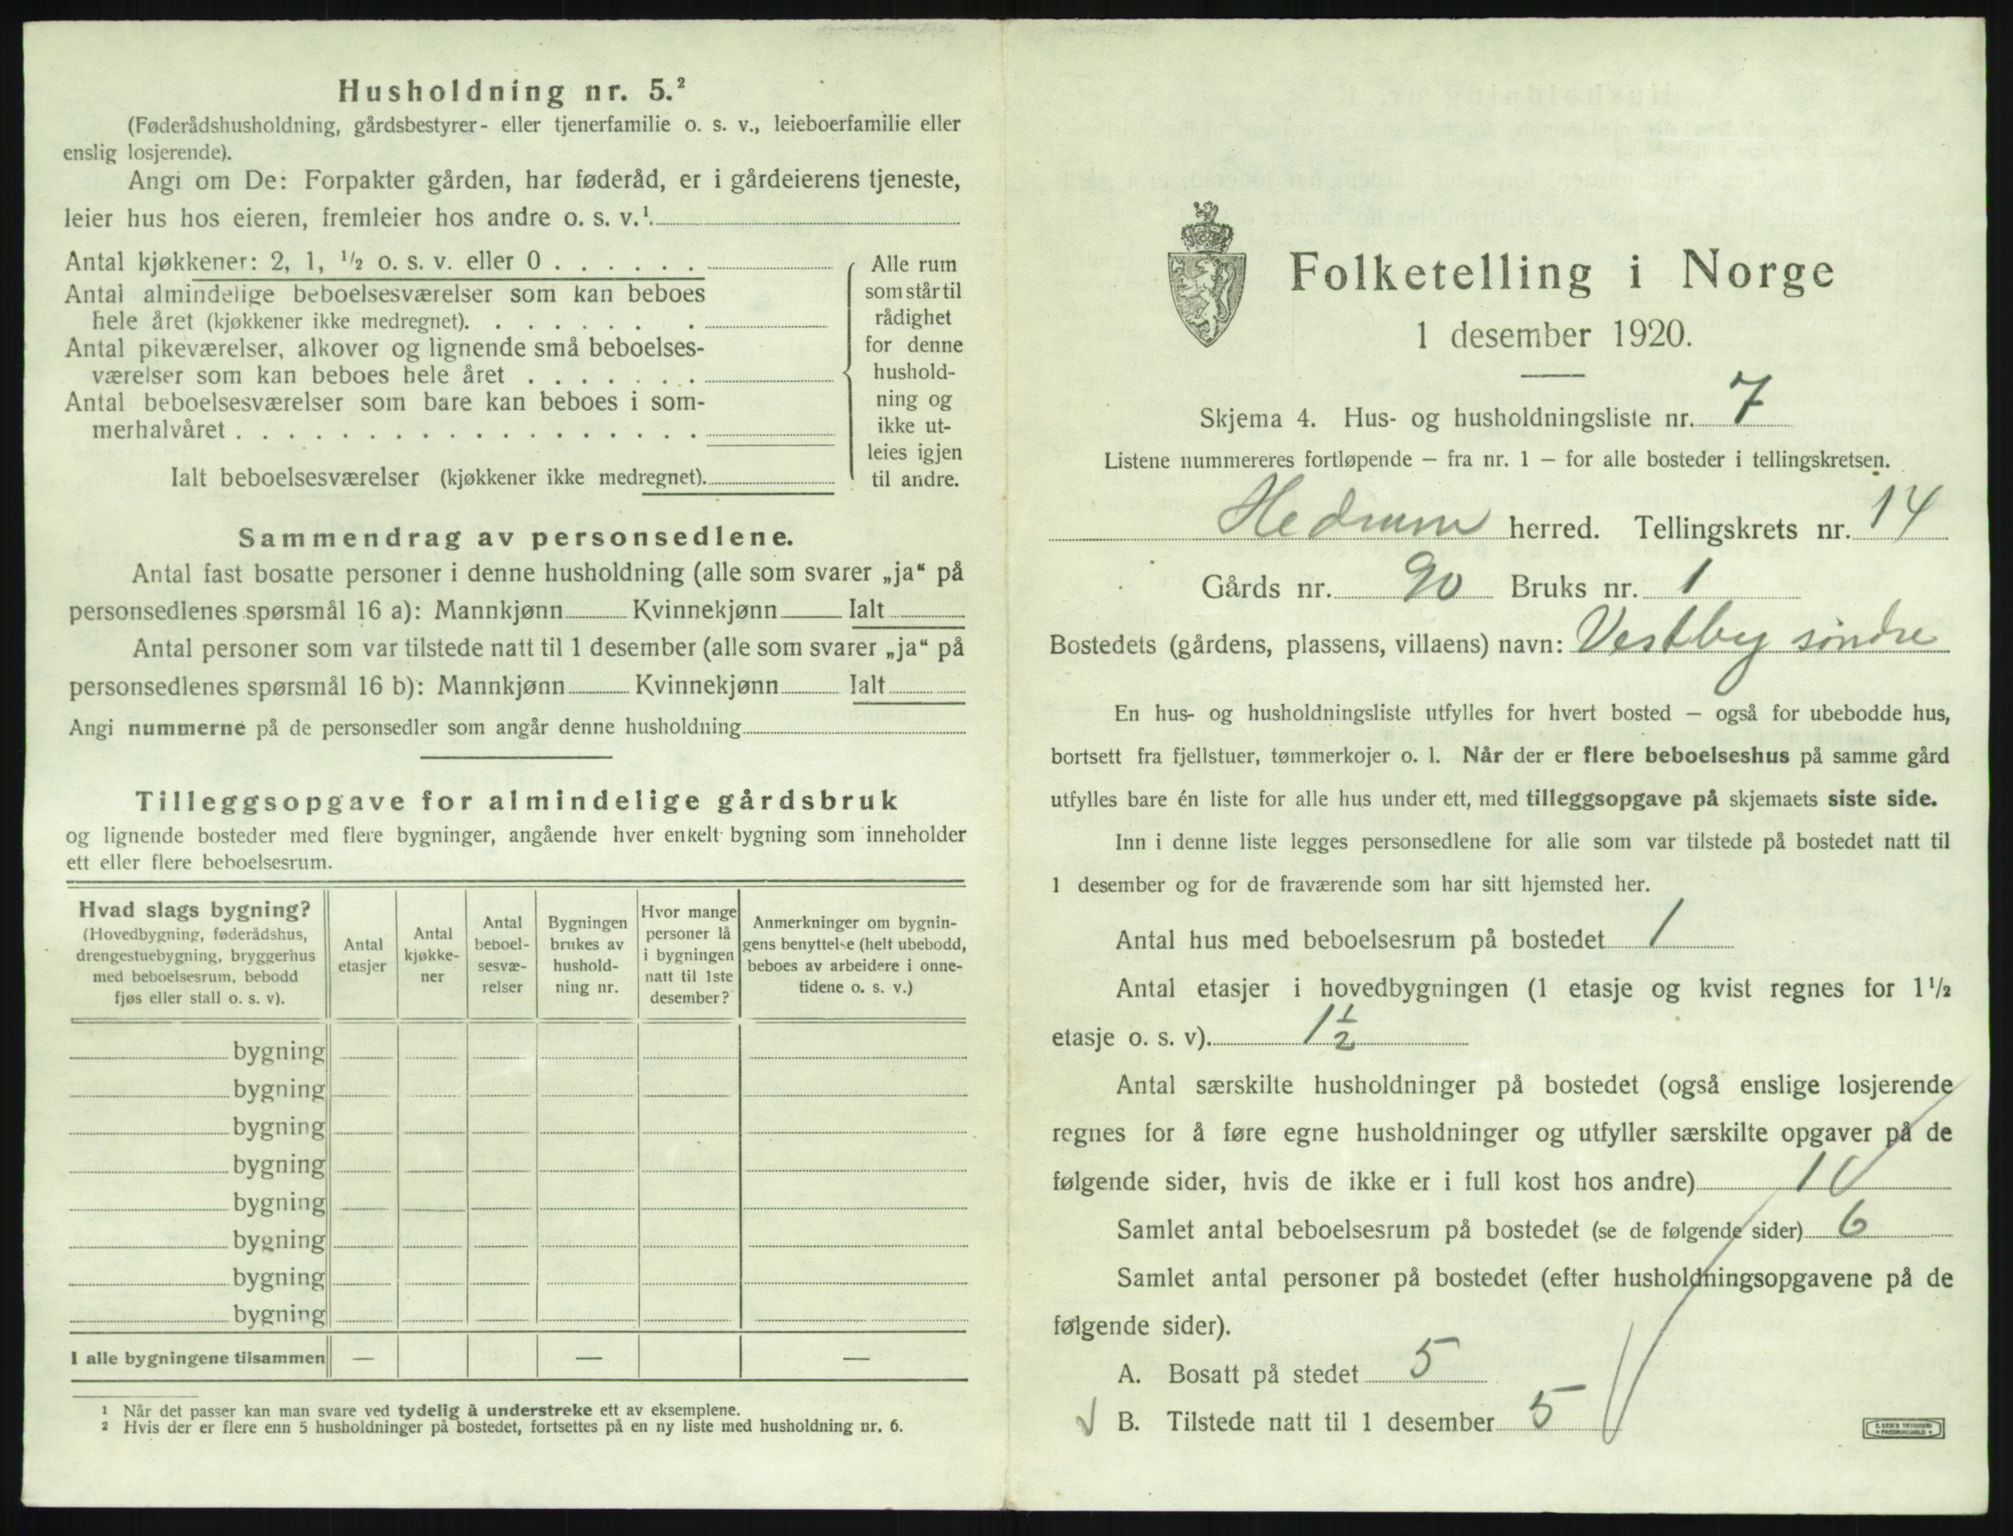 Husholdning nr. 5.²
(Føderådshusholdning, gårdsbestyrer- eller tjenerfamilie o. s. v., leieboerfamilie eller
enslig losjerende).
Angi om De: Forpakter gården, har føderåd, er i gårdeierens tjeneste,
leier hus hos eieren, fremleier hos andre o. s. v.¹
Antal kjøkkener: 2, 1, ½ o. s. v. eller 0 . . . . . .
Antal almindelige beboelsesværelser som kan beboes
hele året (kjøkkener ikke medregnet). . . . . . . . .
Antal pikeværelser, alkover og lignende små beboelses-
værelser som kan beboes hele året . . . . . . .
Antal beboelsesværelser som bare kan beboes i som-
merhalvåret . . . . . . . . . . . . . . . . . .
Ialt beboelsesværelser (kjøkkener ikke medregnet).
Alle rum
som står til
rådighet
for denne
hushold-
ning og
ikke ut-
leies igjen
til andre.
Sammendrag av personsedlene.
Antal fast bosatte personer i denne husholdning (alle som svarer „ja“ på
personsedlenes spørsmål 16 a): Mannkjønn Kvinnekjønn Ialt
Antal personer som var tilstede natt til 1 desember (alle som svarer „ja“ på
personsedlenes spørsmål 16 b): Mannkjønn Kvinnekjønn Ialt
Angi nummerne på de personsedler som angår denne husholdning
Tilleggsopgave for almindelige gårdsbruk
og lignende bosteder med flere bygninger, angående hver enkelt bygning som inneholder
ett eller flere beboelsesrum.
Hvad slags bygning?
(Hovedbygning, føderådshus,
drengestuebygning, bryggerhus
med beboelsesrum, bebodd
fjøs eller stall o. s. v).
Antal
etasjer
Antal
kjøkke-
ner
Antal
beboel-
sesvæ-
relser
Bygningen
brukes av
hushold-
ning nr.
Hvor mange
personer lå
i bygningen
natt til 1ste
desember?
Anmerkninger om bygnin-
gens benyttelse (helt ubebodd,
beboes av arbeidere i onne-
tidene o. s. v.)
bygning
bygning
bygning
bygning
bygning
bygning
bygning
bygning
I alle bygningene tilsammen — — —
¹ Når det passer kan man svare ved tydelig å understreke ett av eksemplene.
² Hvis der er flere enn 5 husholdninger på bostedet, fortsettes på en ny liste med husholdning nr. 6.
Folketelling i Norge
1 desember 1920.
Skjema 4. Hus- og husholdningsliste nr. 7
Listene nummereres fortløpende — fra nr. 1 — for alle bosteder i tellingskretsen.
Hedrum herred. Tellingskrets nr. 14
Gårds nr. 90 Bruks nr. 1
Bostedets (gårdens, plassens, villaens) navn: Vestby søndre
En hus- og husholdningsliste utfylles for hvert bosted — også for ubebodde hus,
bortsett fra fjellstuer, tømmerkojer o. l. Når der er flere beboelseshus på samme gård
utfylles bare én liste for alle hus under ett, med tilleggsopgave på skjemaets siste side.
Inn i denne liste legges personsedlene for alle som var tilstede på bostedet natt til
1 desember og for de fraværende som har sitt hjemsted her.
Antal hus med beboelsesrum på bostedet 1
Antal etasjer i hovedbygningen (1 etasje og kvist regnes for 1½
etasje o. s. v). 1½
Antal særskilte husholdninger på bostedet (også enslige losjerende
regnes for å føre egne husholdninger og utfyller særskilte opgaver på de
følgende sider, hvis de ikke er i full kost hos andre) 1
Samlet antal beboelsesrum på bostedet (se de følgende sider) 6
Samlet antal personer på bostedet (efter husholdningsopgavene på de
følgende sider).
A. Bosatt på stedet 5
B. Tilstede natt til 1 desember 5